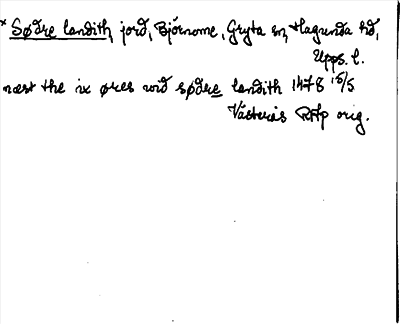 * Sødre landith, jord, Björnome, Gryta sn, Hagunda hd,
Upps. l.
næst the ix øres wid sødre landith 1478 15/5
Västerås RAp orig.